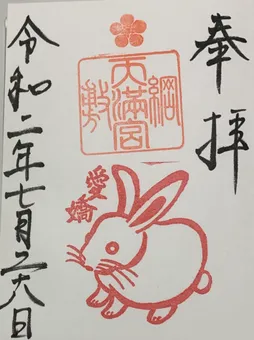 奉拝
綱敷
天満宮
愛嬌
令和二年七月二十八日